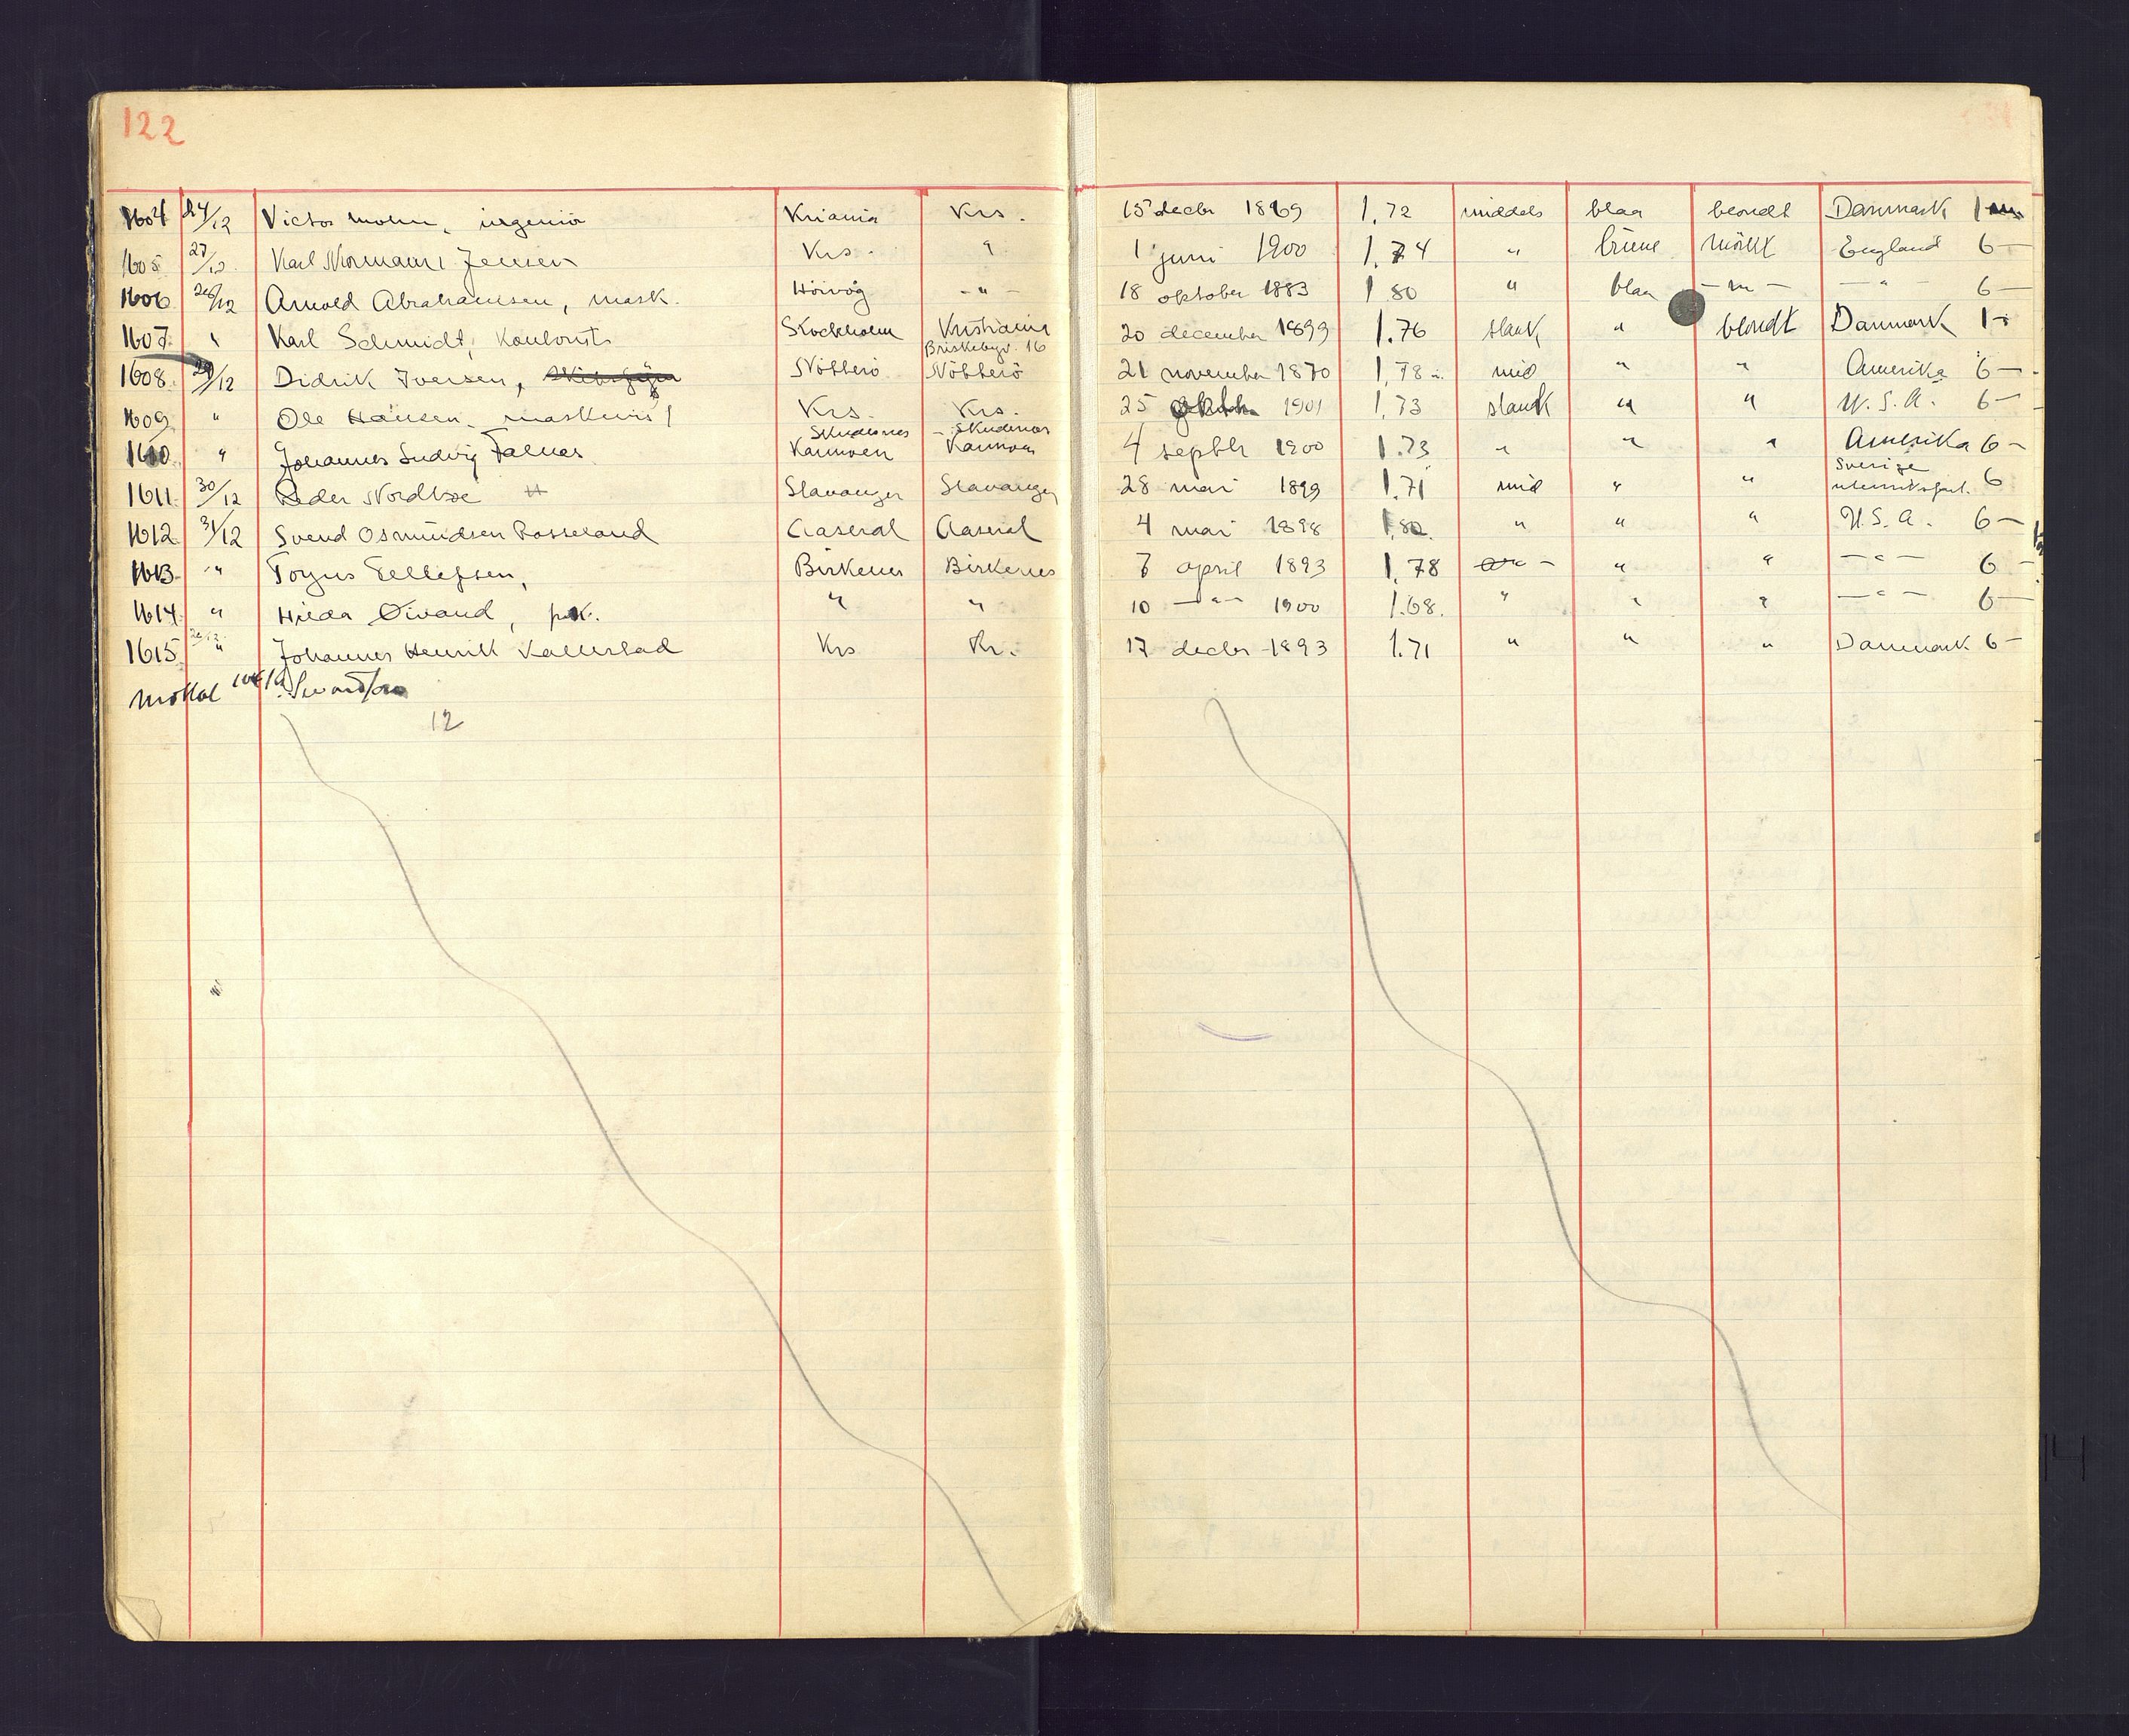 122
1604 24/12 Victor Mohn, ingeniör Kriania Krs. 15 decbr 1869 1,72 middels blaa blondt Danmark 1
1605 27/12 Karl Normann Jensen Krs. " 1 juni 1900 1.74 " brune mörkt England 6 —
1606 28/12 Arnold Abrahamsen, mask. Hövåg - " - 18 oktober 1883 1 80 " blaa — " — — " — 6 —
1607 " Karl Schmidt, Kontorist Stockholm Kristiania 20 december 1899 1.76 slank " blondt Danmark 1 -
Briskebyv. 16
1608. 29/12 Didrik Iversen, Nötterö Nötterö 21 november 1870 1,78 mid " " Amerika 6 —
1609 " Ole Hansen, maskinist Krs. Krs. 25 1901 1,73 slank " " U.S.A. 6 —
Skudesnes - Skudenes
1610 " Johannes Ludvig Falnes Karmöen Karmöen 4 septbr 1900 1.73 " " " Amerika 6 -
Sverige
1611. 30/12 Peder Nordboe Stavanger Stavanger 28 mai 1899 1.71 mid " " 6
1612 31/12 Svend Osmundsen Rosseland Aaseral Aaseral 4 mai 1898 1,82. " " " U.S.A. 6 —
1613. " Torjus Tellefsen, Birkenes Birkenes 7 april 1893 1,78 " " — " — 6 —
1614. " Hilda Öivand, " " 10 — " — 1900 1.68. " " " — " — 6 —
1615 " Johannes Henrik Kallestad Krs Kr. 17 decbr 1893 1.71 " " " Danmark 6 -
12